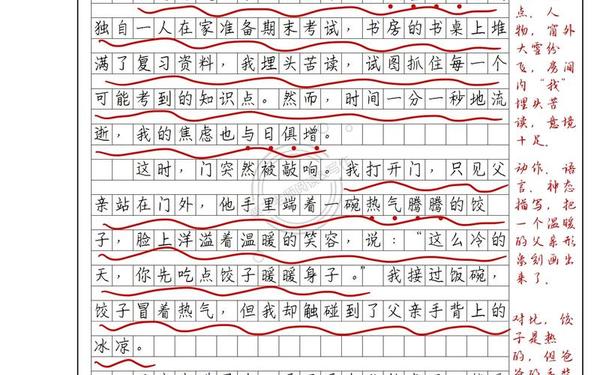 独自一人在家准备期末考试，书房的书桌上堆
满了复习资料，我埋头苦读，试图抓住每一个
可能考到的知识点。然而，时间一分一秒地流
逝，我的焦虑也与日俱增。
这时，门突然被敲响。我打开门，只见父
亲站在门外，他手里端着一碗热气腾腾的饺
子，脸上洋溢着温暖的笑容，说：“这么冷的
天，你先吃点饺子暖暖身子。”我接过饭碗，
饺子冒着热气，但我却触碰到了父亲手背上的
冰凉。
点、人
物，窗外
大雪纷
飞，房间
内“我”
埋头苦
读，意境
十足。
动作、语
言、神态
描写，把
一个温暖
的父亲形
象刻画出
来了。
对比，饺
子是热
的，但爸